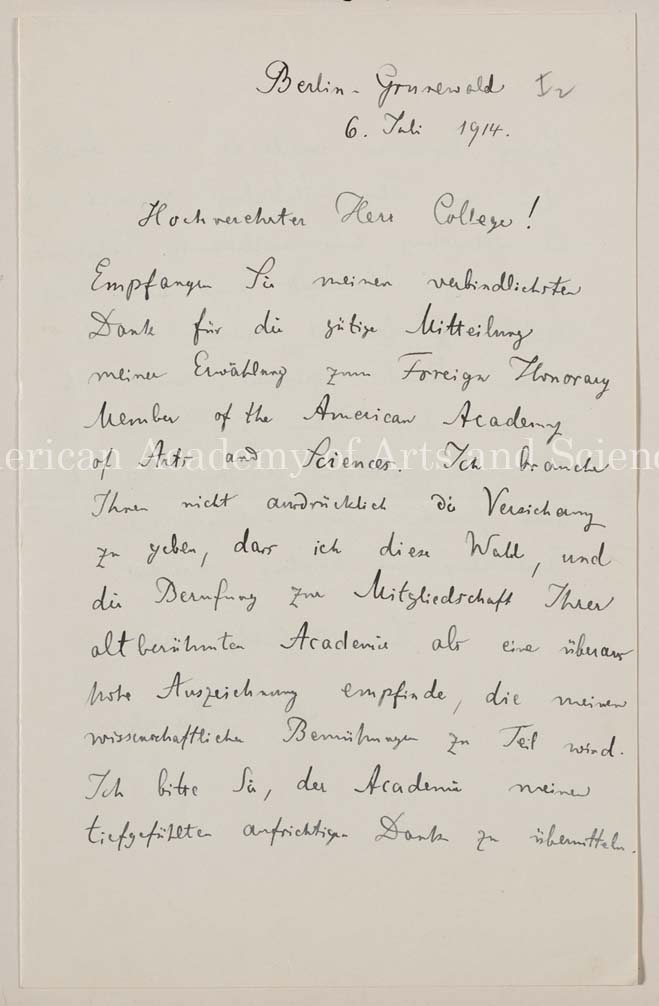 Berlin-Grunewald I2
6. Juli 1914.
Hochverehrter Herr College!
Empfangen Sie meinen verbindlichsten
Dank für die gütige Mitteilung
meiner Erwählung zum Foreign Honorary
Member of the American Academy
of Arts and Sciences. Ich brauche
Ihnen nicht ausdrücklich die Versicherung
zu geben, dass ich diese Wahl, und
die Berufung zur Mitgliedschaft Ihrer
altberühmten Academie als eine überaus
hohe Auszeichnung empfinde, die meinen
wissenschaftlichen Bemühungen zu Teil wird.
Ich bitte Sie, der Academie meinen
tiefgefühlten aufrichtigen Dank zu übermitteln.
merican Academy of Arts and Scienc